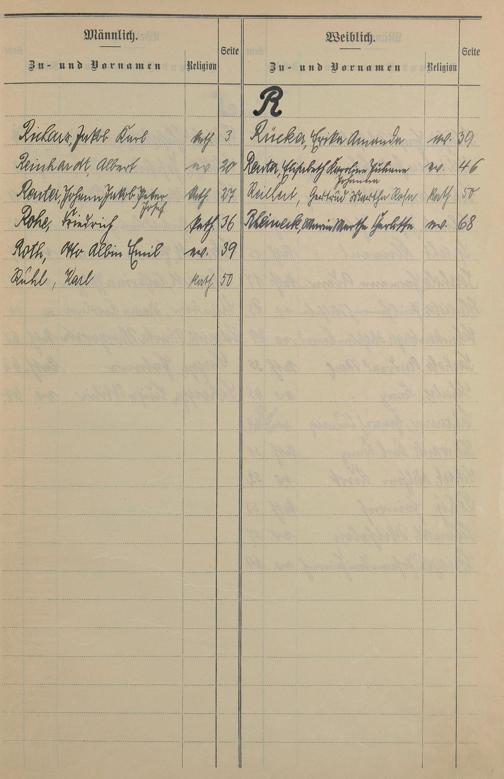 Männlich.
Zu- und Vornamen Religion Seite
Richarz, Jakob Karl kath. 3
Reinhardt Albert ev. 20
Reuter, Johann Jakob Peter kath 27
Josef
Rohe, Friedrich kath 36
Roth, Otto Albin Emil ev. 39
Rühl, Karl kath. 50
Weiblich.
Zu- und Vornamen Religion Seite
R
Rücka, Erika Amanda ev. 39
Reuter, Elisabeth Karoline ev. 46
Johanna
Gertrud Martha Rosa kath 50
Maria Martha ev. 68